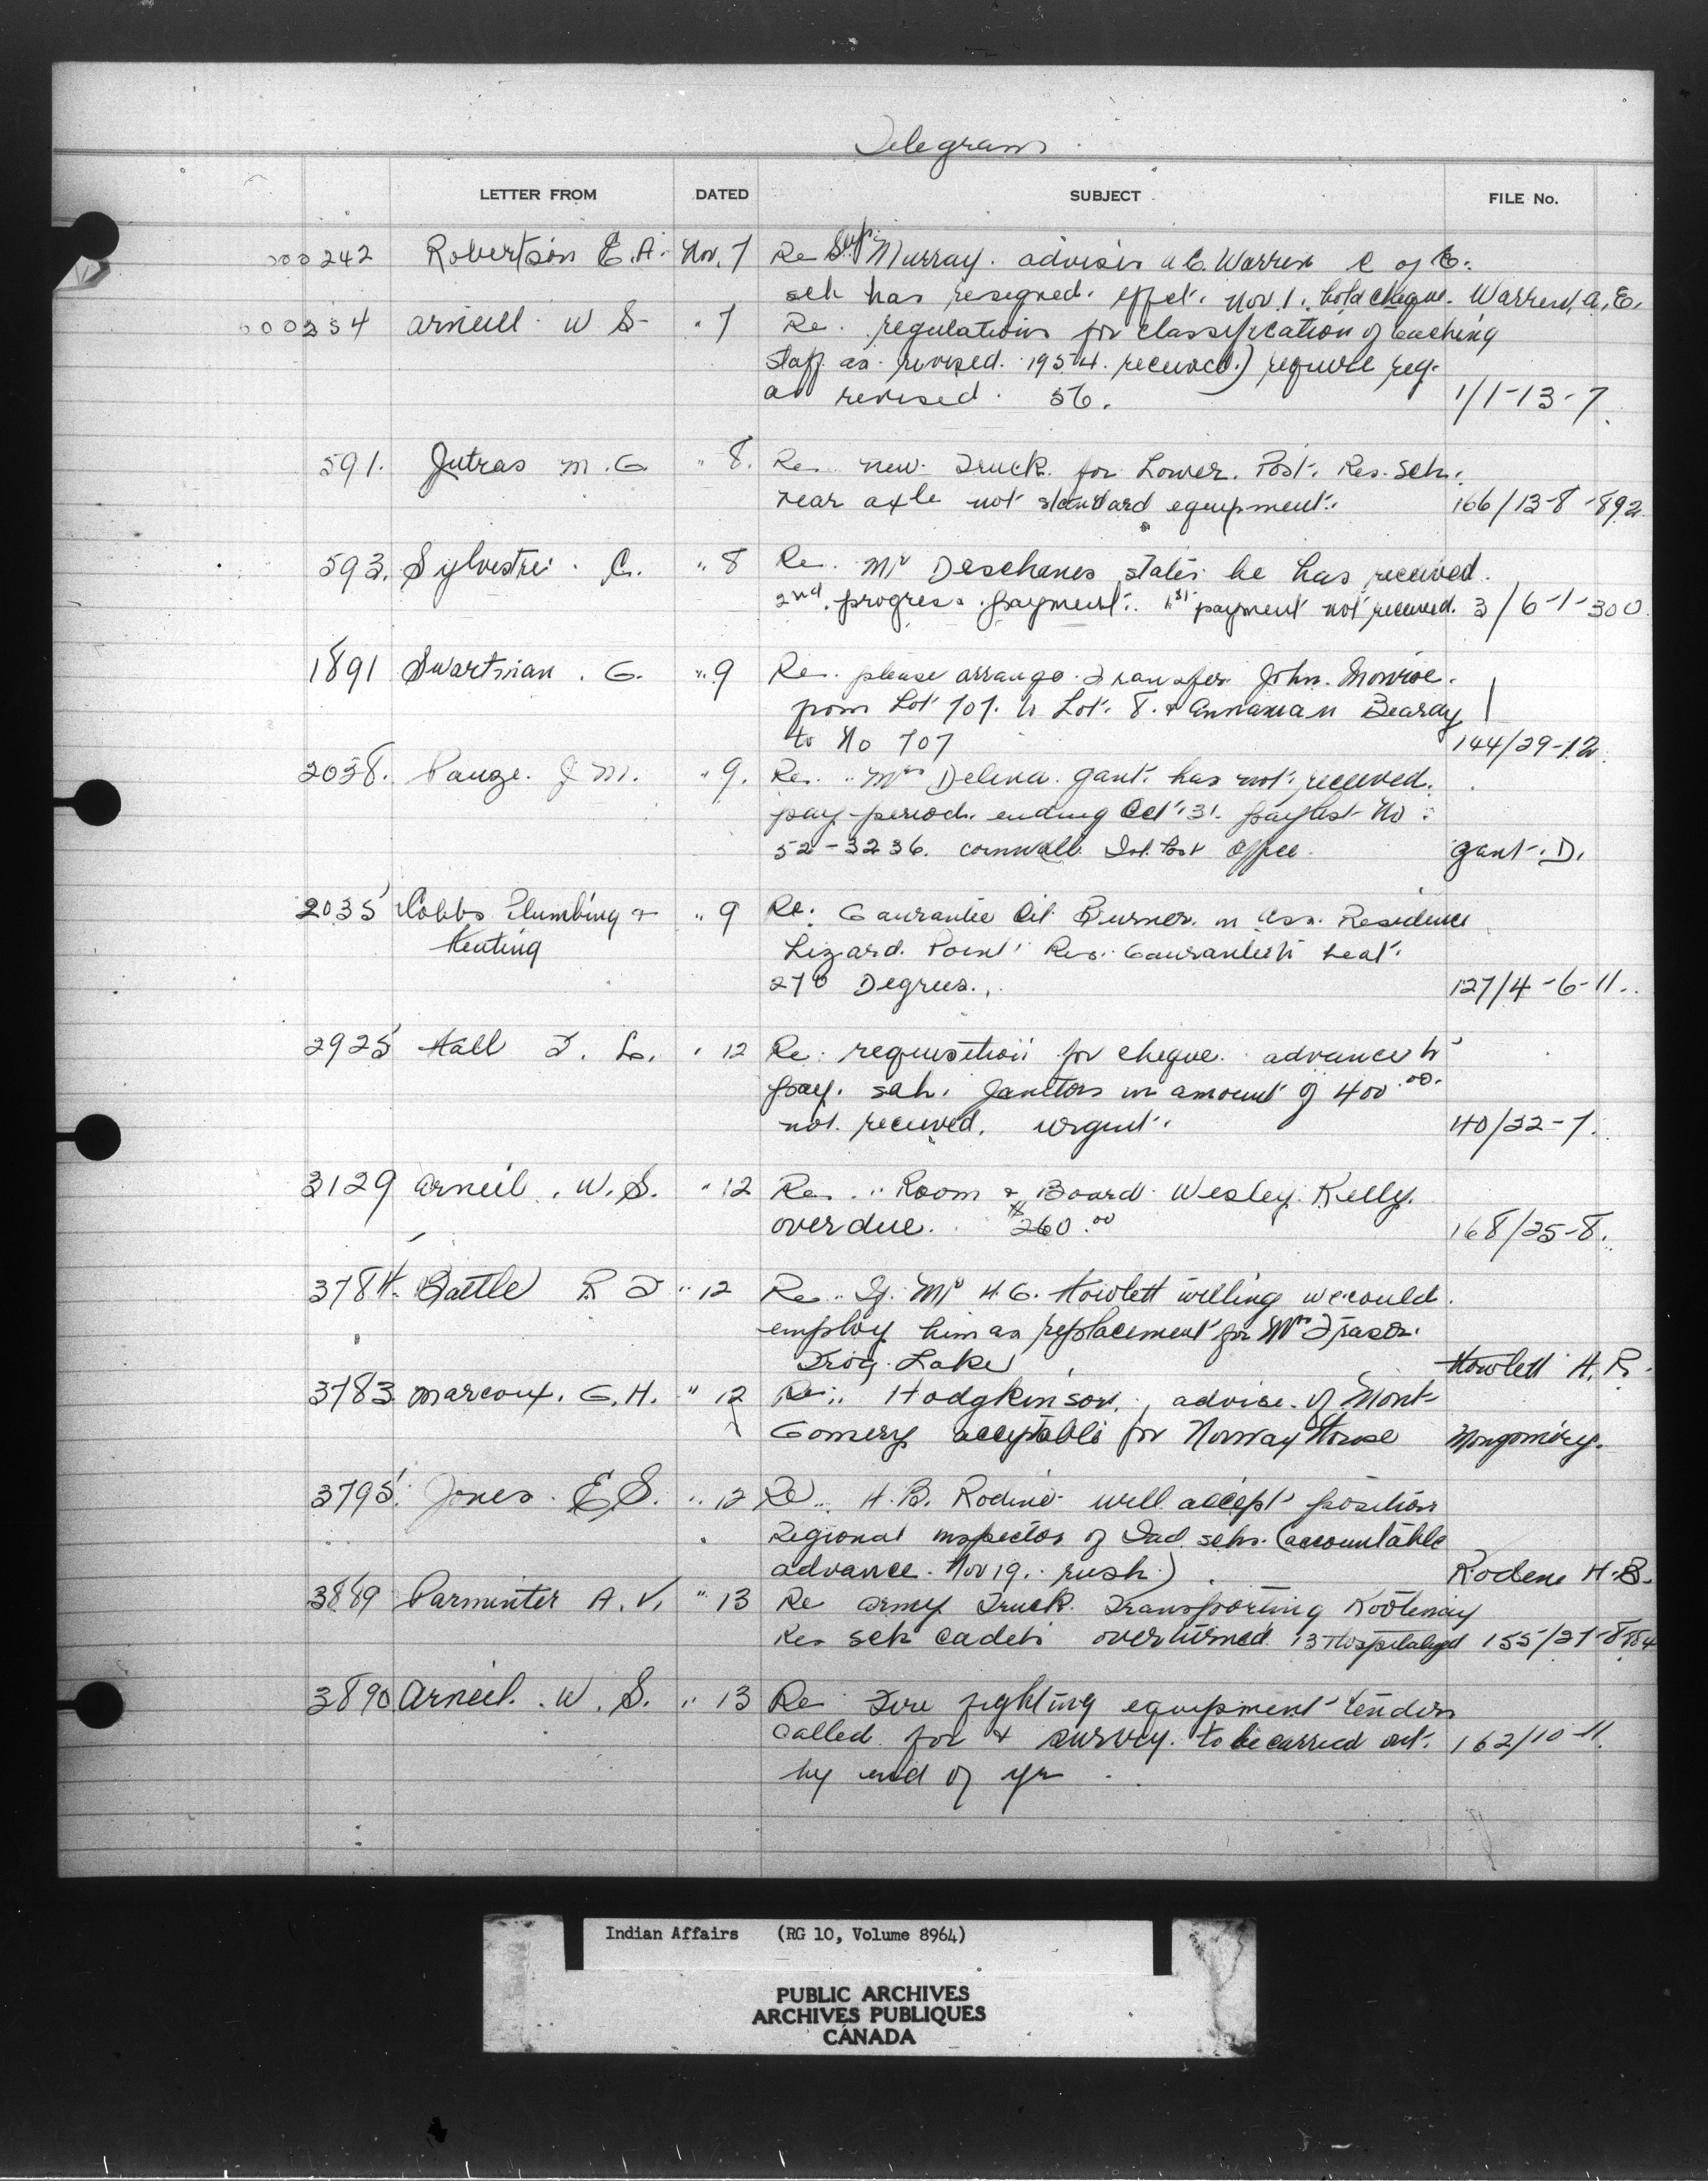 Telegram
LETTER FROM DATED SUBJECT FILE No.
000242 Robertson E.A. Nov. 7 Re Sup. Murray. advises A.E. Warren C of E.
sch has resigned. effect. Nov 1. hold cheque. Warren, A.E.
000254 Arneil W S " 7 Re. regulations for classification of teaching
staff as revised. 1954. received.) require reg.
as revised. 56. 1/1-13-7
591. Jutras M.G. " 8. Re. new Truck for Lower. Post. Res. Sch.
rear axle not standard equipment. 166/13-8-892
593. Sylvestre. C. " 8 Re. Mr Deschenes states he has received.
2nd. progress. payment. 1st payment not received. 3/6-1-300
1891 Swartman. G. " 9 Re. please arrange Transfer John. Monroe.
from Lot 707. to Lot. 8. & Annaman Beardy
to No 707 144/29-12
2038. Pauze. J M. " 9. Re. Mrs Delena. Gant. has not received.
pay-period. ending Oct. 31. paylist No.
52-3236. Cornwall Isl. Post Office. Gant. D.
2035 Cobbs Plumbing & " 9 Re. Gaurantee Oil Burner in Ass. Residence
Heating Lizard. Point Res. Gaurantees heat.
270 Degrees. 127/4-6-11.
2925 Hall T. L. " 12 Re. requisition for cheque. advance to
pay. sch. Janitors in amount of 400.00.
not received. urgent. 40/22-7.
3129 Arneil. W.S. " 12 Re. Room & Board Wesley. Kelly.
overdue. $260.00 168/25-8.
3784. Battle R I " 12 Re. If Mr H.G. Howlett willing we could
employ him as replacement for Mrs Frasor.
Frog Lake Howlett H. R.
3783 Marcoux. G.H. " 12 Re. Hodgkinson, advise. of Mont-
Gomery acceptable for Norway House Mongomery.
3795. Jones. E.S. " 12 Re. H.B. Rodine will accept position
Regional inspector of Ind. schs. (accountable
advance. Nov 19. rush.) Rodine H.B.
3889 Parminter A.V. " 13 Re Army Truck Transporting Kootenay
Res sch cadets overturned. 13 Hospitalized 155/27-8-884
3890 Arneil. W.S. " 13 Re Fire fighting equipment tenders
called for & survey. to be carried out. 162/10-11.
by end of yr
Indian Affairs (RG 10, Volume 8964)
PUBLIC ARCHIVES
ARCHIVES PUBLIQUES
CANADA